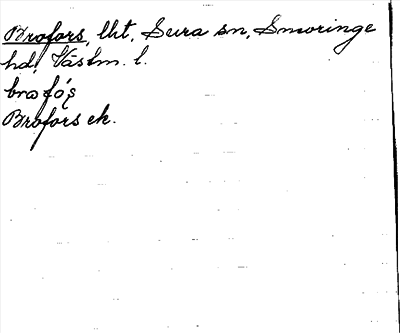 Brofors, lht, Sura sn, Snevringe
hd, Västm. l.
Brofors ek.